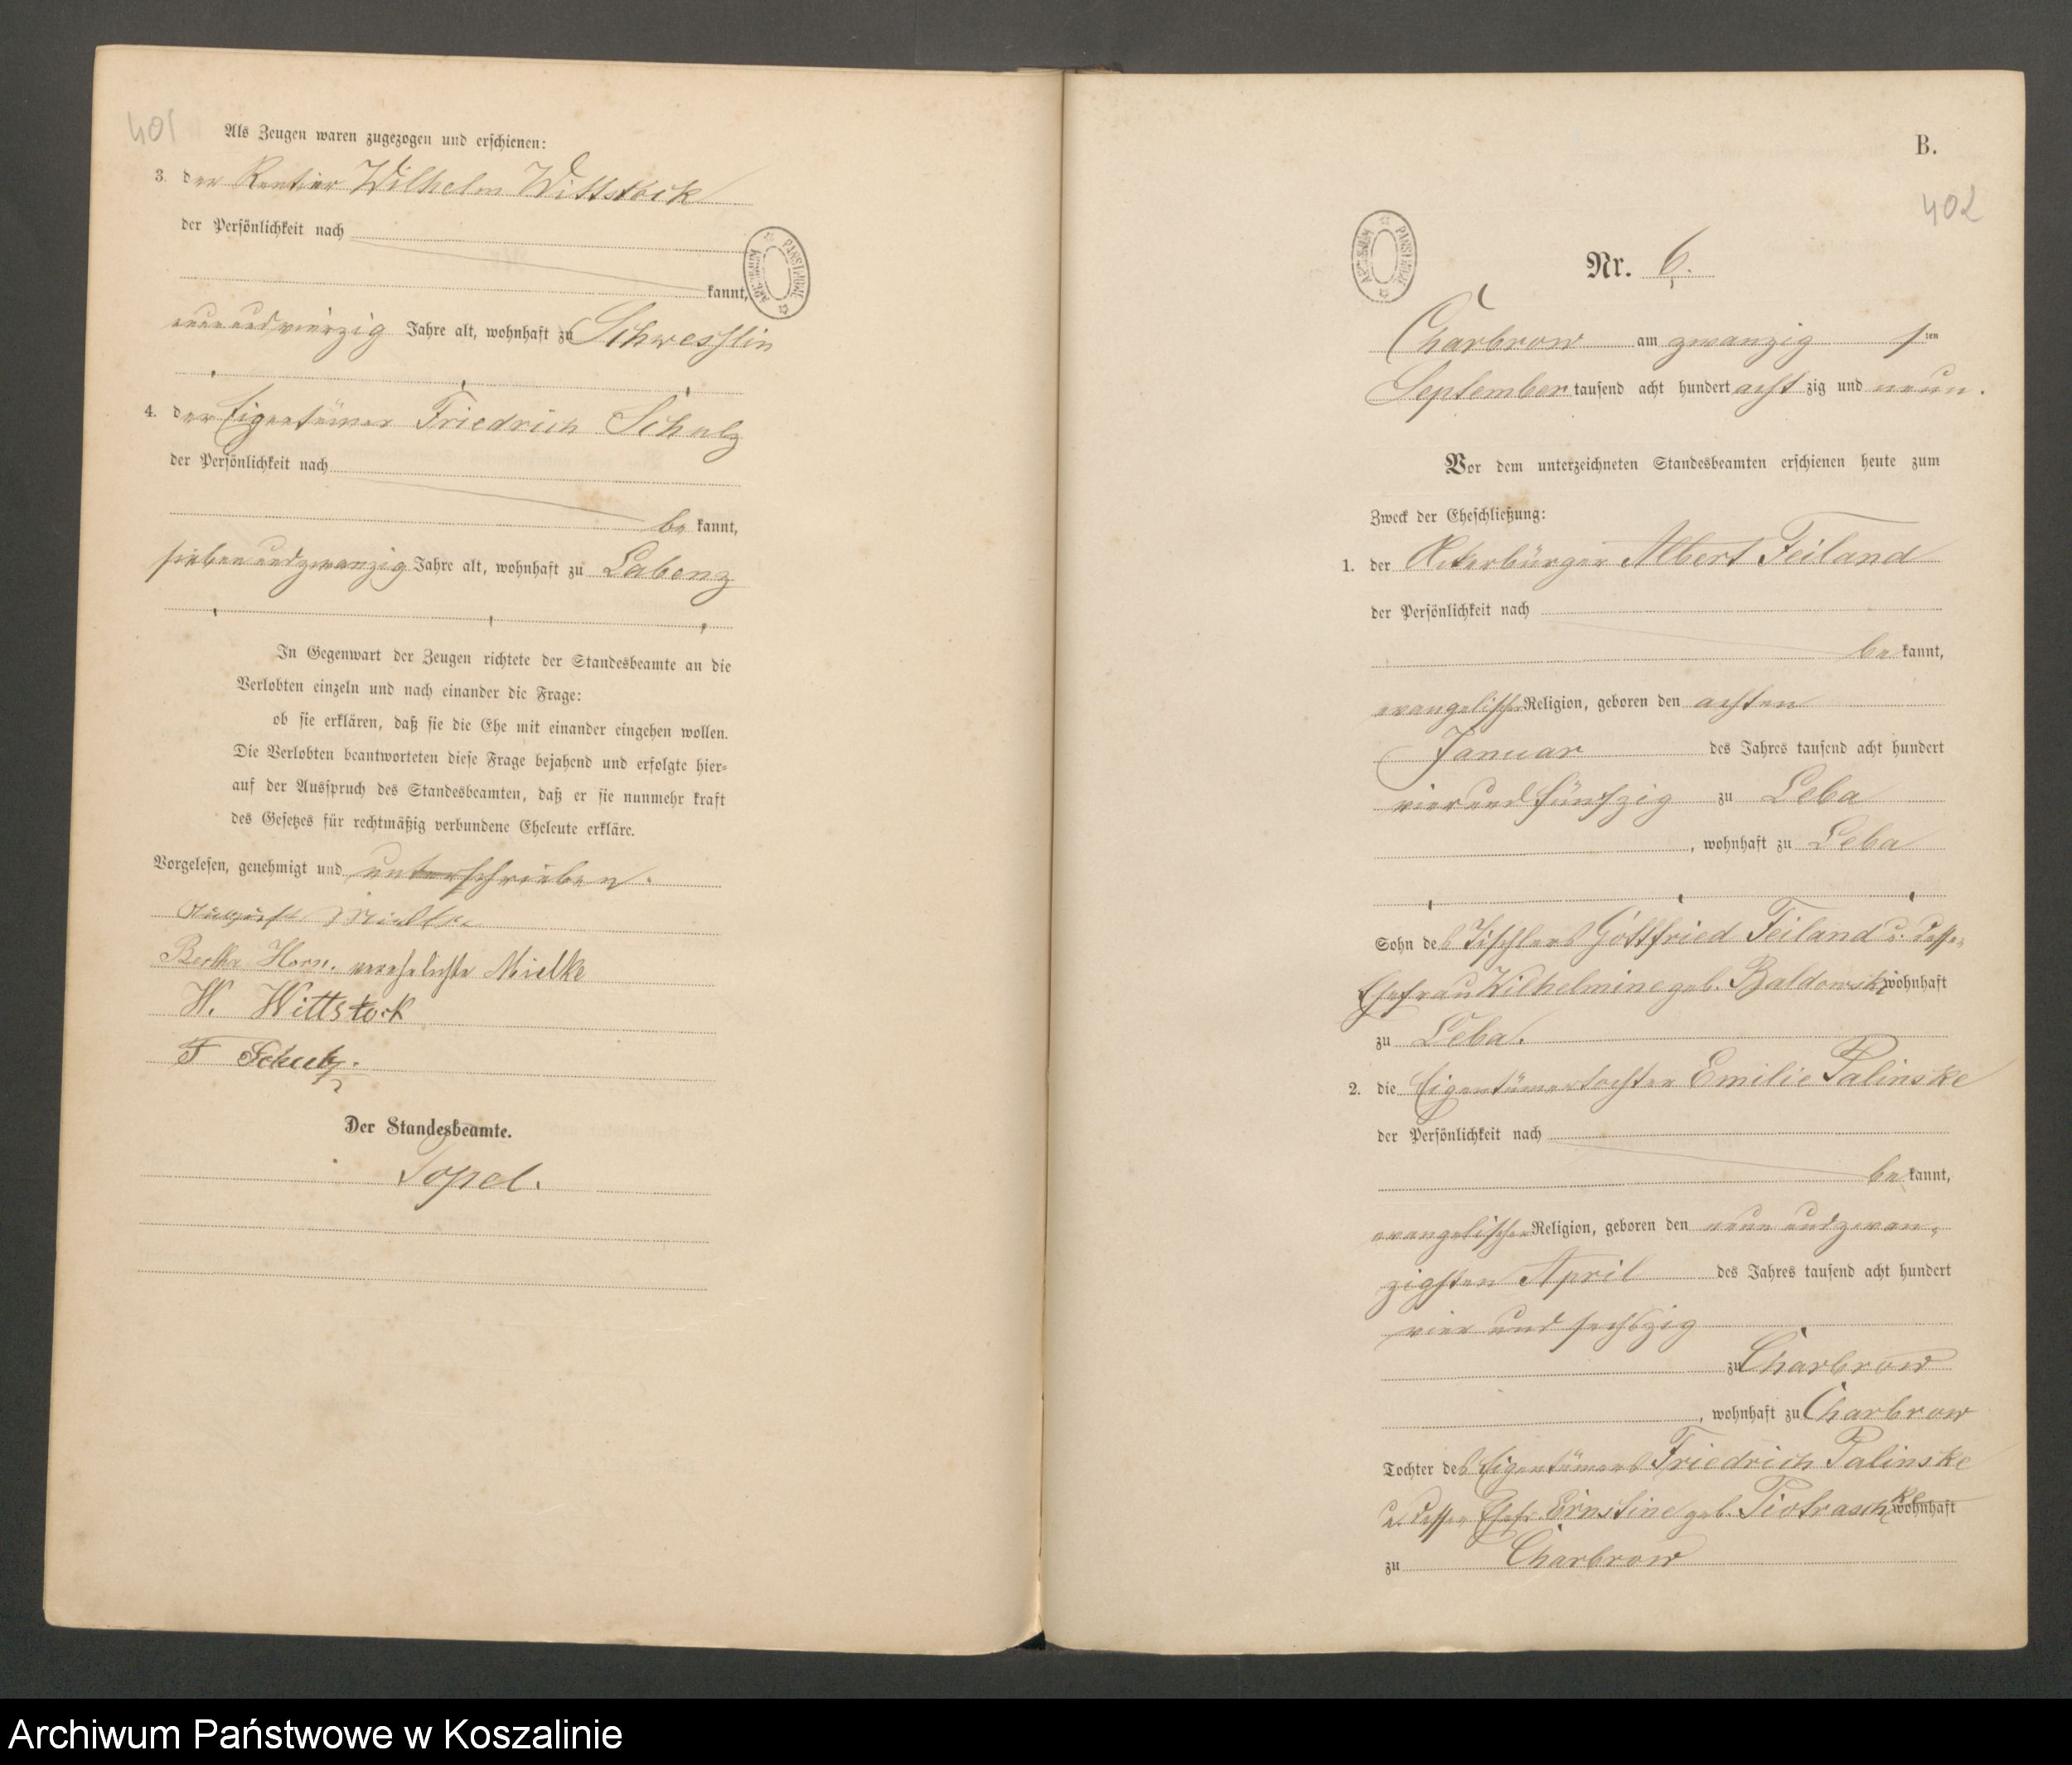 401
Als Zeugen waren zugezogen und erschienen:
3. der Rentier Wilhelm Wittstock
der Persönlichkeit nach
kannt,
neunundvierzig Jahre alt, wohnhaft zu Schwesslin
4. der Eigentümer Friedrich Schulz
der Persönlichkeit nach
be kannt,
siebenundzwanzig Jahre alt, wohnhaft zu Labenz
In Gegenwart der Zeugen richtete der Standesbeamte an die
Verlobten einzeln und nach einander die Frage:
ob sie erklären, daß sie die Ehe mit einander eingehen wollen.
Die Verlobten beantworteten diese Frage bejahend und erfolgte hier-
auf der Ausspruch des Standesbeamten, daß er sie nunmehr kraft
des Gesetzes für rechtmäßig verbundene Eheleute erkläre.
Vorgelesen, genehmigt und unterschrieben.
August Mielke
Bertha Horn. verehelichte Mielke
W. Wittstock
F Schulz.
Der Standesbeamte.
Topel.
ARCHIWUM PAŃSTWOWE
B.
402
ARCHIWUM PAŃSTWOWE
Nr. 6.
Charbrow am zwanzig sten
September tausend acht hundert acht zig und neun.
Vor dem unterzeichneten Standesbeamten erschienen heute zum
Zweck der Eheschließung:
1. der Ackerbürger Albert Feiland
der Persönlichkeit nach
be kannt,
evangelischer Religion, geboren den achten
Januar des Jahres tausend acht hundert
vier und fünfzig zu Leba
, wohnhaft zu Leba
Sohn des Tischlers Gottfried Feiland u. dessen
Ehefrau Wilhelmine geb. Baldowski wohnhaft
zu Leba.
2. die Eigentümertochter Emilie Palinske
der Persönlichkeit nach
be kannt,
evangelischer Religion, geboren den neun und zwan-
zigsten April des Jahres tausend acht hundert
vier und sechszig
zu Charbrow
, wohnhaft zu Charbrow
Tochter des Eigentümers Friedrich Palinske
u. dessen Ehefr. Ernstine geb. Piotraschke wohnhaft
zu Charbrow
Archiwum Państwowe w Koszalinie